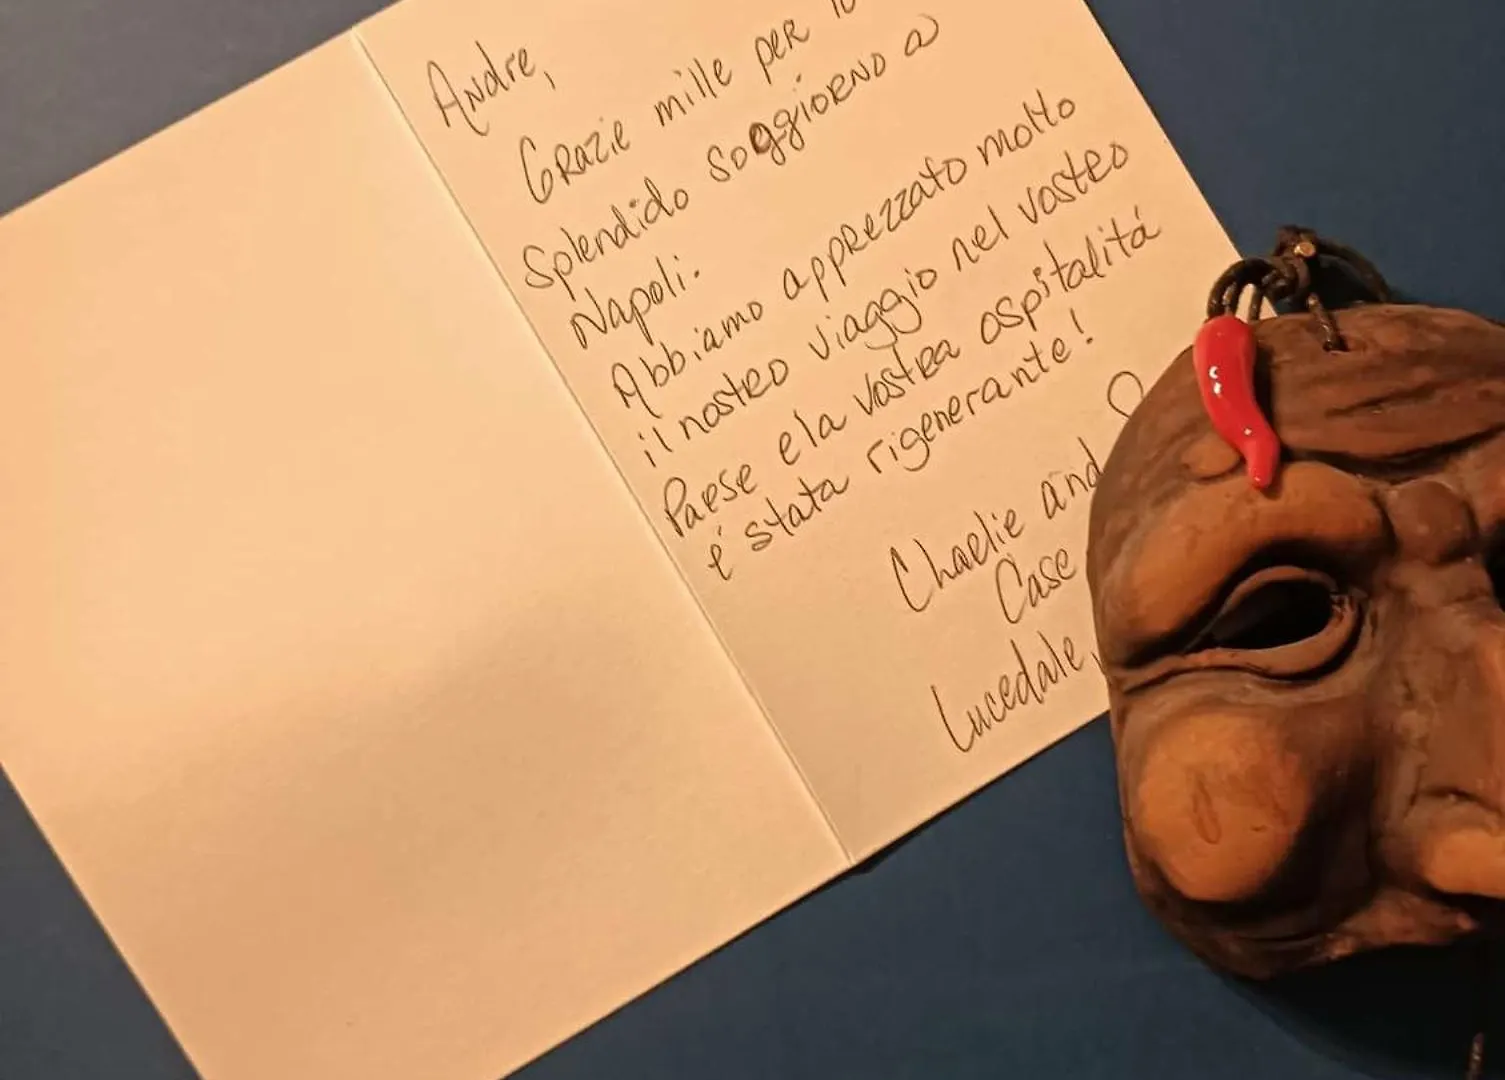 Andre,
Grazie mille per lo
splendido soggiorno a
Napoli.
Abbiamo apprezzato molto
il nostro viaggio nel vostro
Paese e la vostra ospitalitá
é stata rigenerante!
Charlie and
Case
Lucedale,